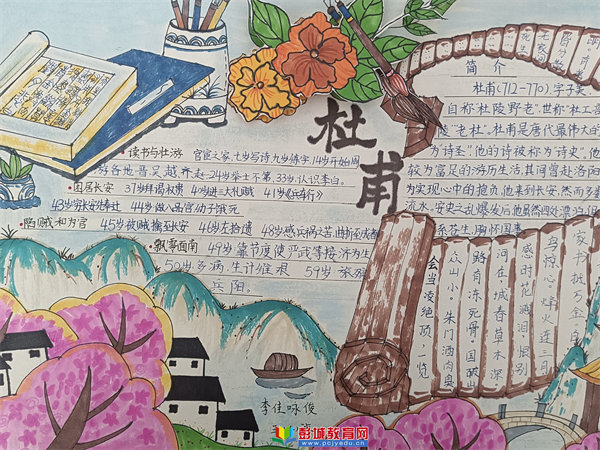 杜甫
·读书与壮游 官宦之家,七岁写诗九岁练字,14岁开始周
游各地晋吴越齐赵.24岁举士不第.33岁认识李白。
·困居长安 37岁拜谒权贵 40岁进三大礼赋 41岁《兵车行》
43岁穷长安 44岁做八品官幼子饿死
·陷贼和为官 45岁被贼掳至长安 46岁左拾遗 48岁感兵祸之苦
·飘零西南 49岁靠节度使严武等接济为生
50岁多病.生计维艰 59岁
岳阳。
简介
杜甫(712-770),字子美
自称"杜陵野老",世称"杜工部
陵""老杜"。杜甫是唐代最伟大的
为诗圣",他的诗被称为"诗史"。他
较为富足的游历生活,其间曾赴洛阳
为实现心中的抱负,他来到长安,然而多
流水。安史之乱爆发后他虽然四处漂泊但
系苍生,胸怀国事
家书抵万金。
鸟惊心。烽火连三月
感时花溅泪,恨别
河在,城春草木深。
路有冻死骨。国破山
众山小。朱门酒肉臭
会当凌绝顶,一览
李佳咏俊
彭诚教育网
www.pcjyedu.cn